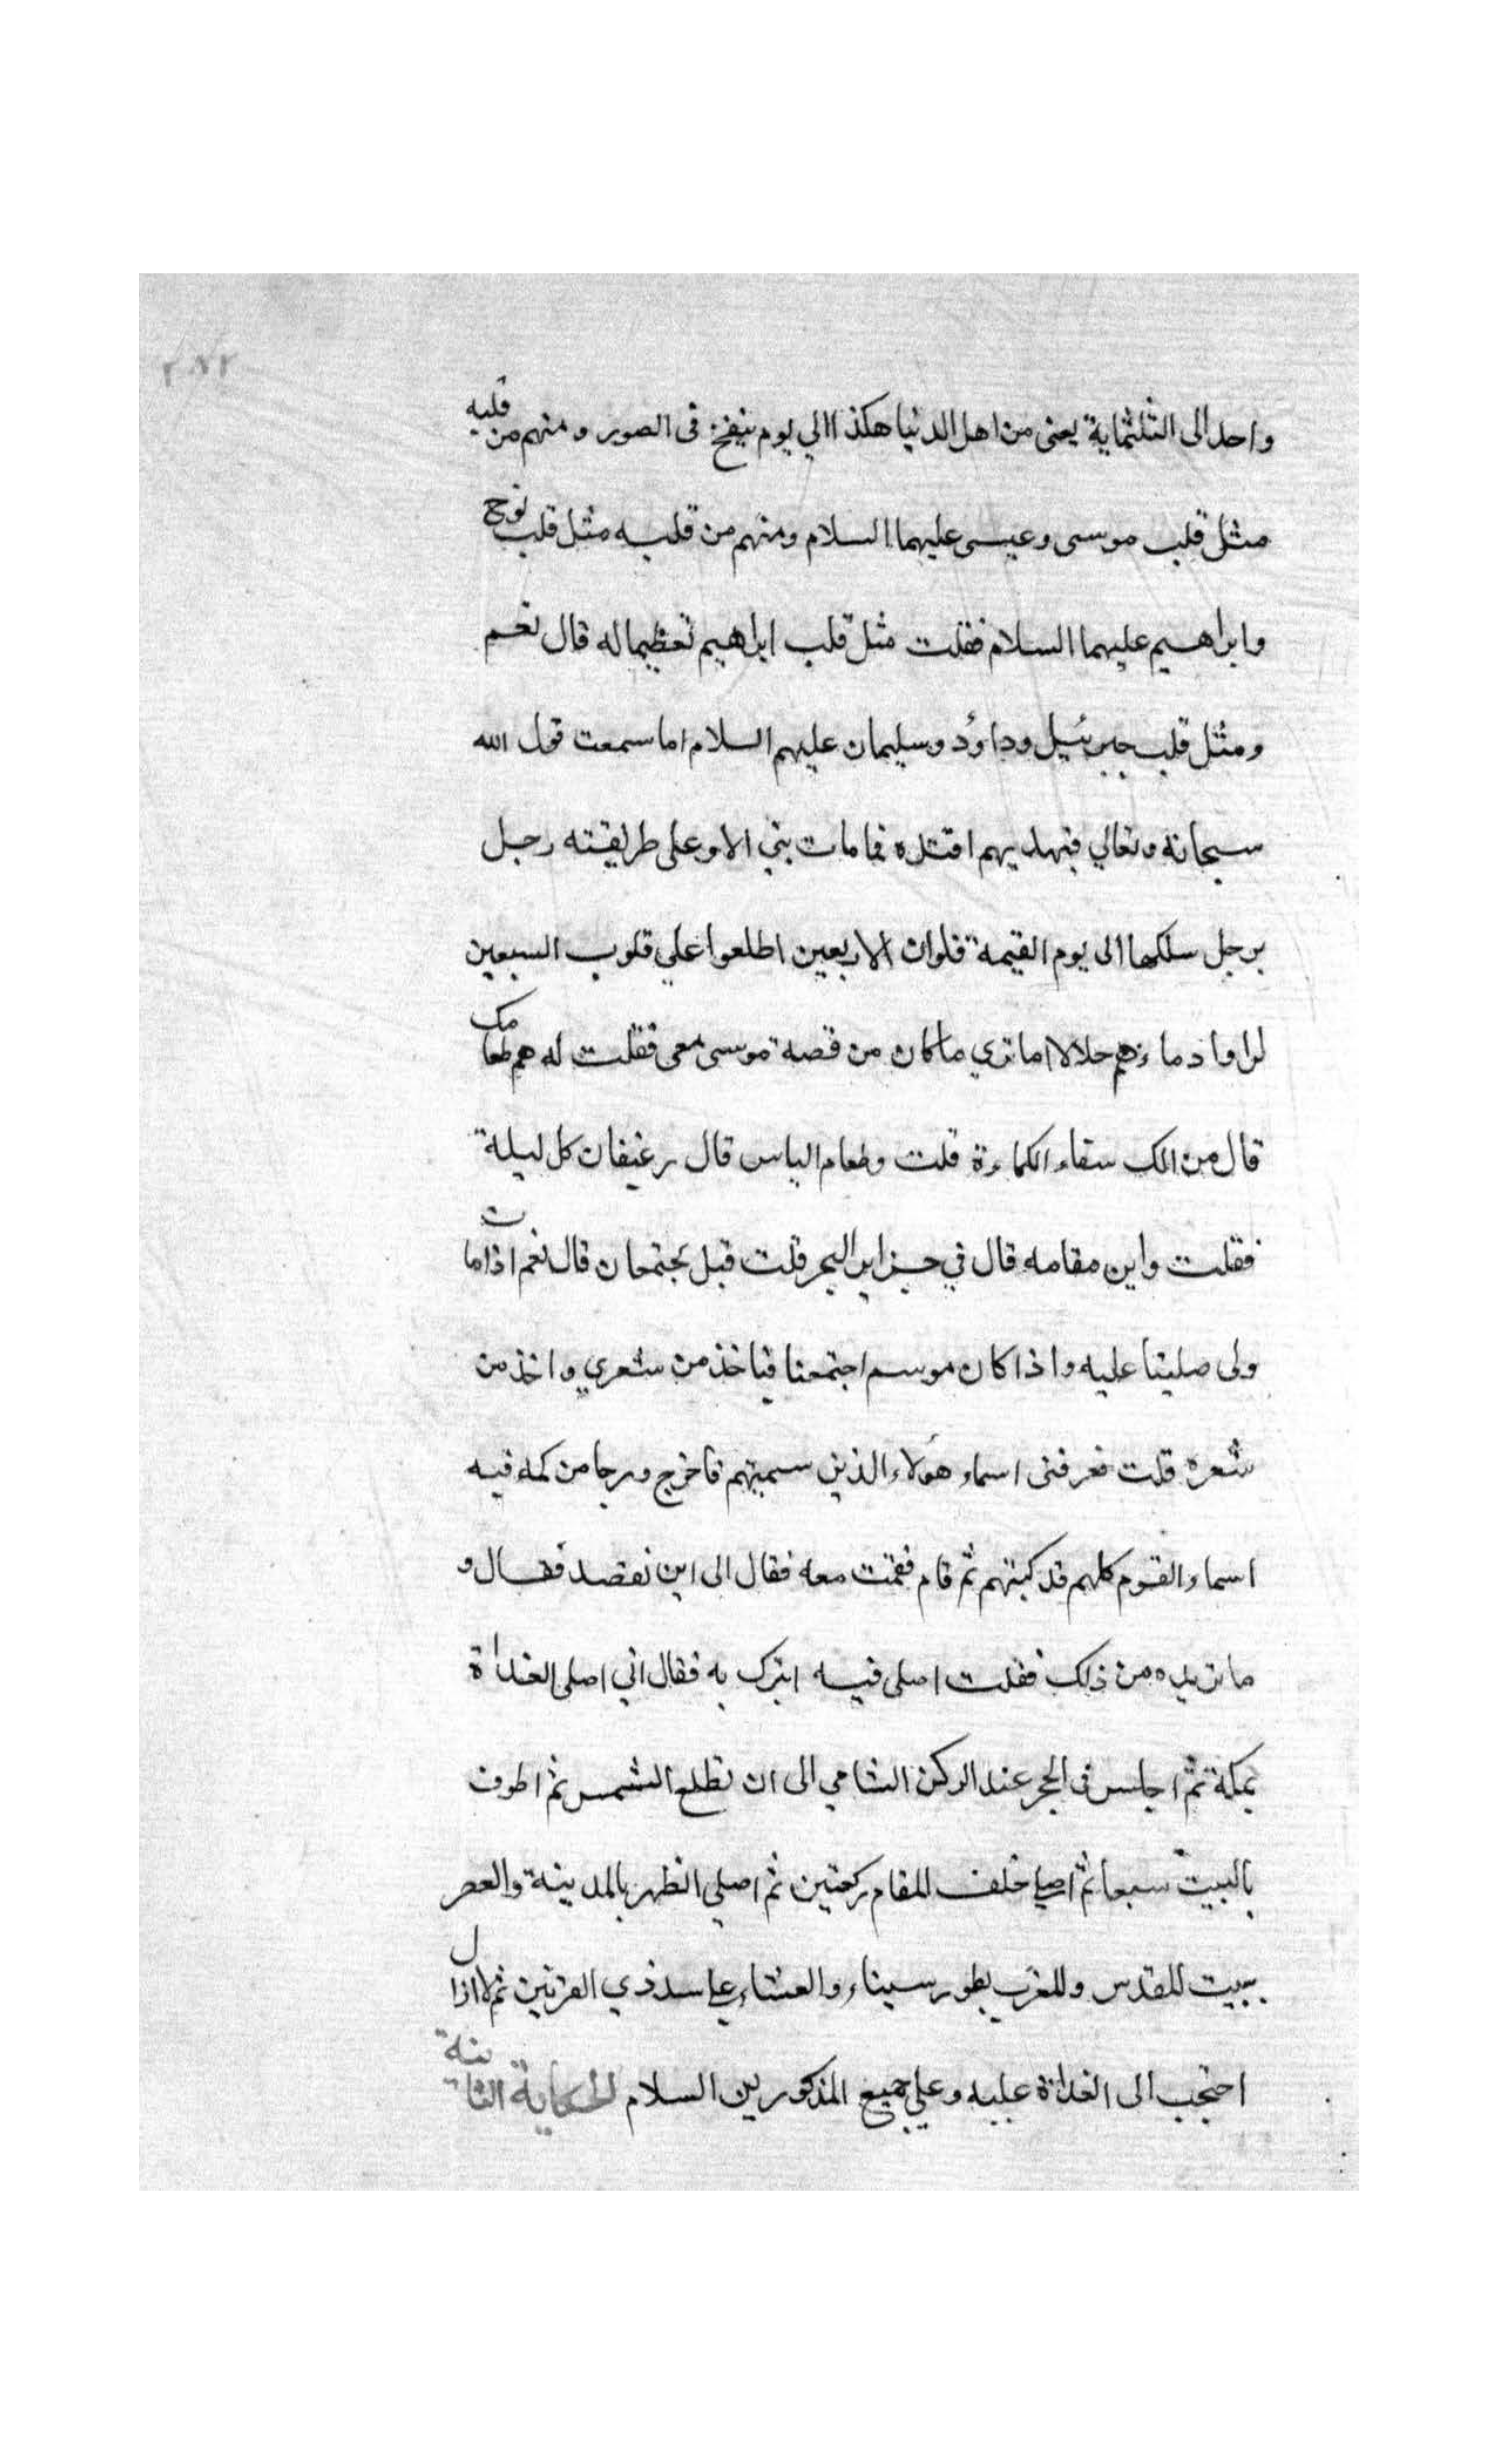 ٢٨٢
واحد الى الثلثماية يعنى من اهل الدنيا هكذا الي يوم ينفخ فى الصور ومنهم من قلبه
مثل قلب موسى وعيسى عليهما السلام ومنهم من قلبه مثل قلب نوح
وابراهيم عليهما السلام فقلت مثل قلب ابراهيم تعظيما له قال نعم
ومثل قلب جبرئيل وداؤد وسليمان عليهم السلام اما سمعت قول الله
سبحانه وتعالي فبهديهم اقتده فما مات بنى الا وعلى طريقته رجل
برجل سلكها الى يوم القيمة فلوان الاربعين اطلعوا علي قلوب السبعين
لراوا دماءهم حلالا اما تري ما كان من قصة موسى معى فقلت له هم طعامك
قال من الك سقاء الكماءة قلت وطعام الياس قال رغيفان كل ليلة
فقلت واين مقامه قال في جزاير البحر قلت قبل تجتمعان قال نعم اذا مات
ولى صلينا عليه واذا كان موسم اجتمعنا فياخذ من شعري واخذ من
شعره قلت فعرفنى اسماء هؤلاء الذين سميتهم فاخرج درجا من كمه فيه
اسماء القوم كلهم قد كبتهم ثم قام فقمت معه فقال الى اين نقصد فقال و
ما تريده من ذلك فقلت اصلى فيه اتبرك به فقال اني اصلى الغداة
بمكة ثم اجلس فى الحجر عند الركن الشامي الى ان تطلع الشمس ثم اطوف
بالبيت سبعا ثم اصلي خلف المقام ركعتين ثم اصلي الظهر بالمدينة والعصر
ببيت المقدس والمغرب بطور سيناء والعشاء على سد ذي القرنين ثم لا ازال
احتجب الى الغداة عليه وعلي جميع المذكورين السلام الحكاية الثانية